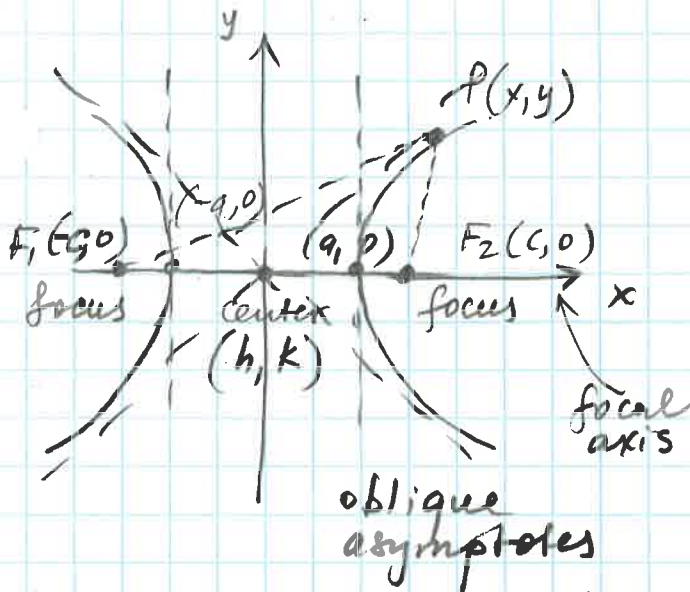 y
P(x,y)
(-a,0)
F₁(-c,0)
(a,0)
F₂(c,0)
focus
center
focus
x
(h,k)
focal
axis
oblique
asymptotes